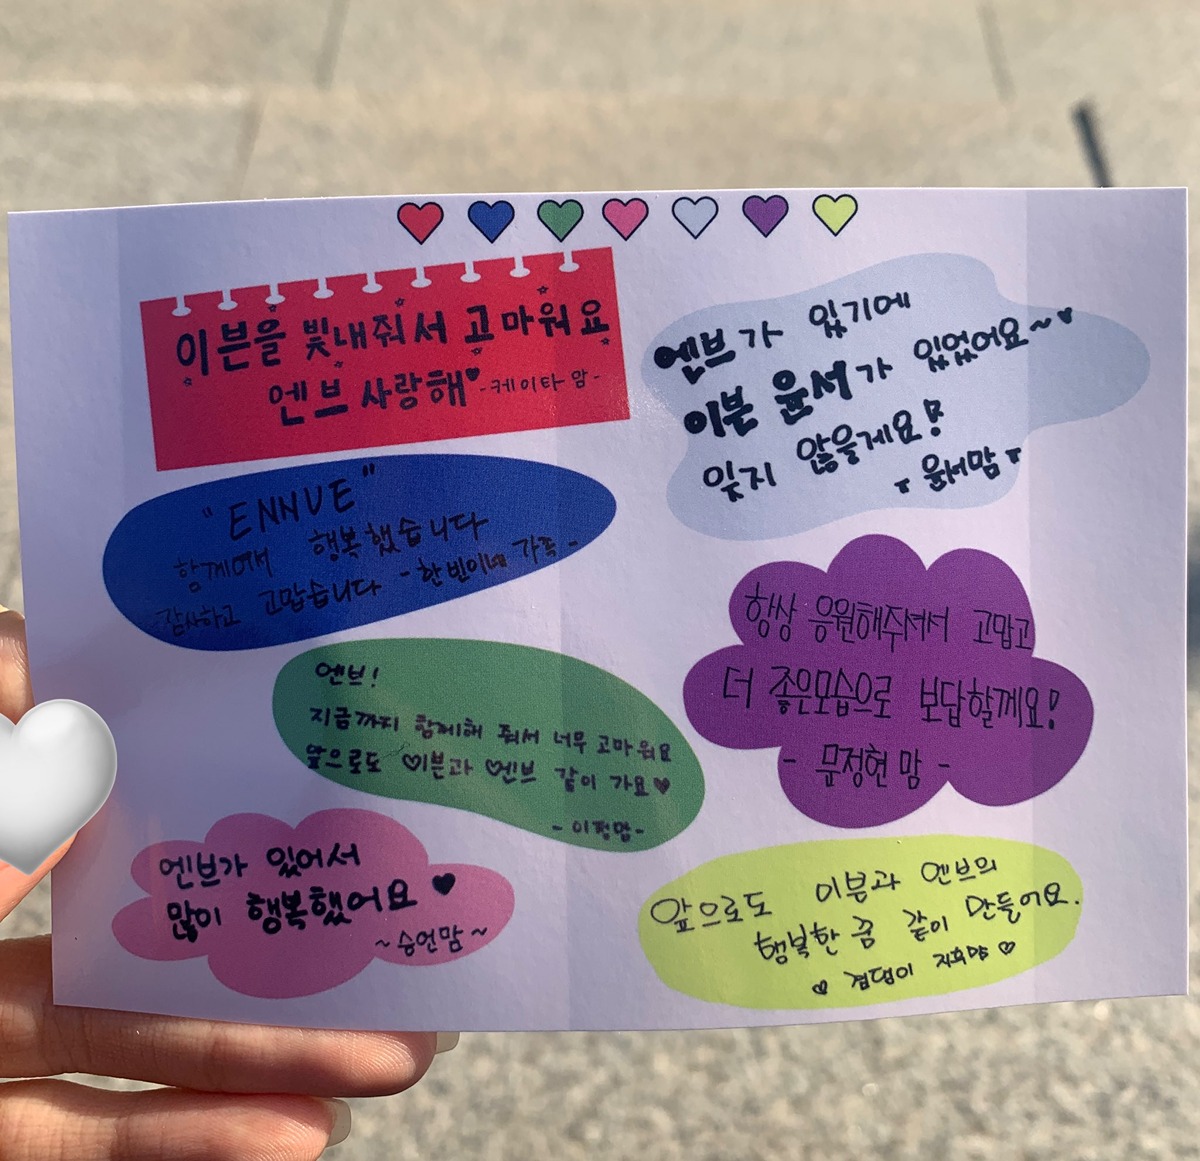 이븐을 빛내줘서 고마워요
엔브 사랑해 -케이타 맘-
엔브가 있기에
이븐 윤서가 있었어요~
잊지 않을게요!
윤서맘
"ENNVE"
함께여애 행복했습니다
감사하고 고맙습니다 -한빈이네 가족-
항상 응원해주셔서 고맙고
더 좋은모습으로 보답할께요!
- 문정현 맘 -
엔브!
지금까지 함께해 줘서 너무 고마워요
앞으로도 이븐과 엔브 같이 가요
-이정맘-
엔브가 있어서
많이 행복했어요
~승언맘~
앞으로도 이븐과 엔브의
행복한 꿈 같이 만들어요.
지후맘